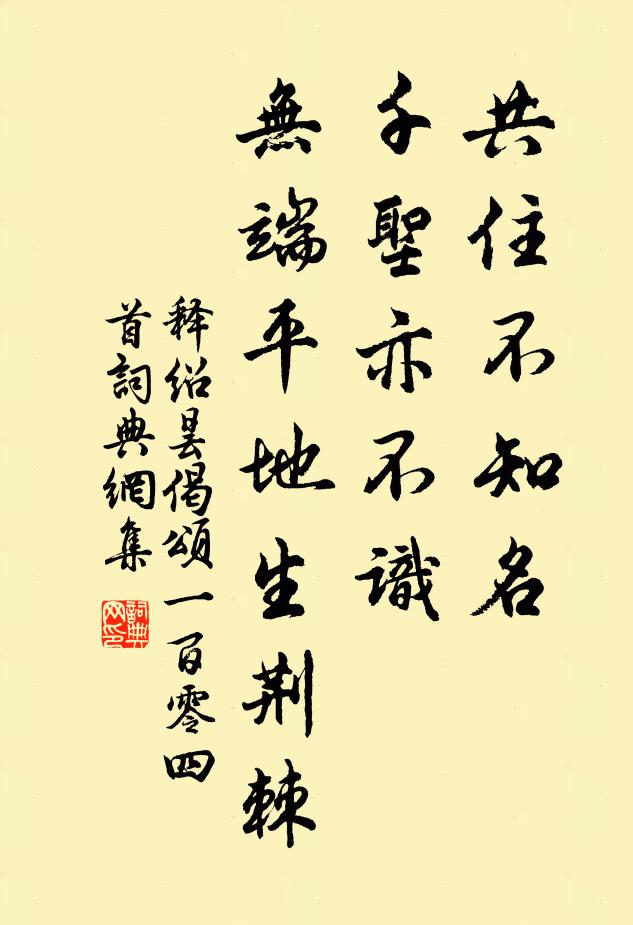 共住不知名
千聖亦不識
無端平地生荆棘
释绍昙偈頌一百零四
首詞典網集
詞典網印